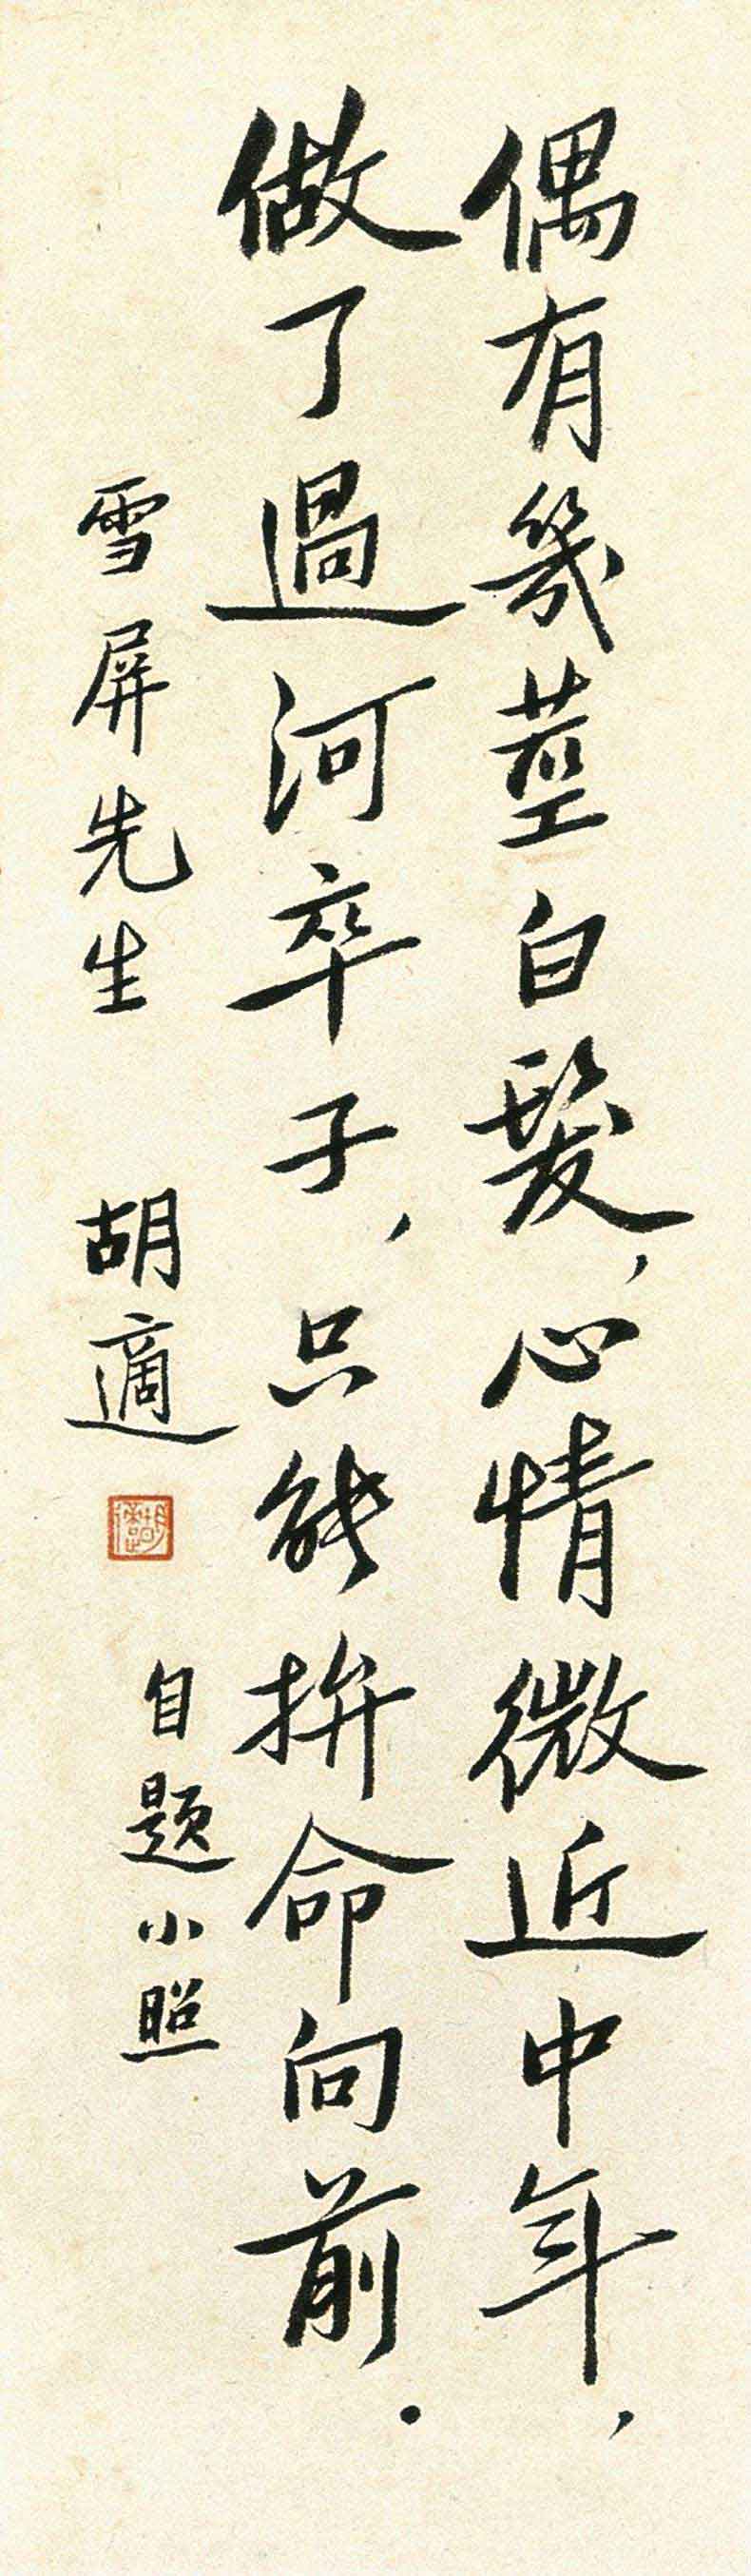 偶有幾莖白髮，心情微近中年，
做了過河卒子，只能拚命向前．
自題小照
雪屏先生 胡適
胡適